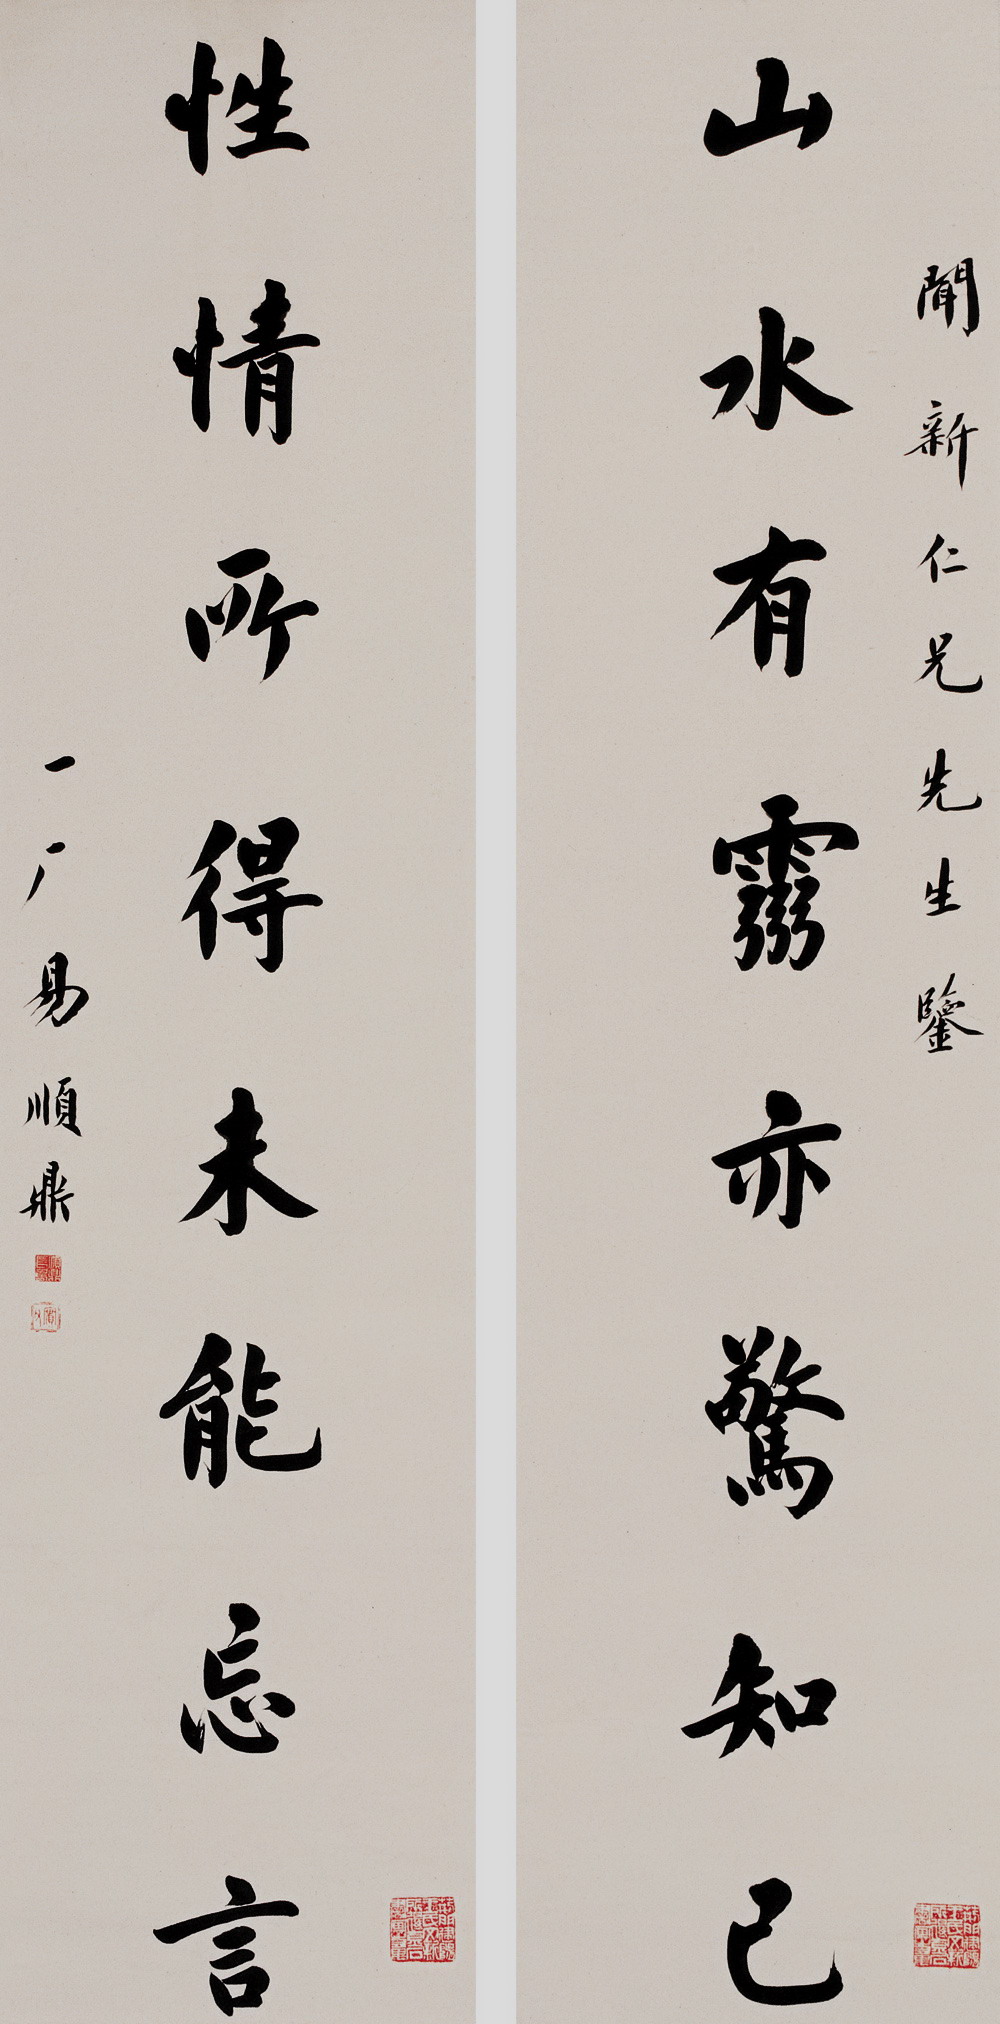 聞新仁兄先生鑒
山水有霛亦驚知己
性情所得未能忘言
一厂易順鼎